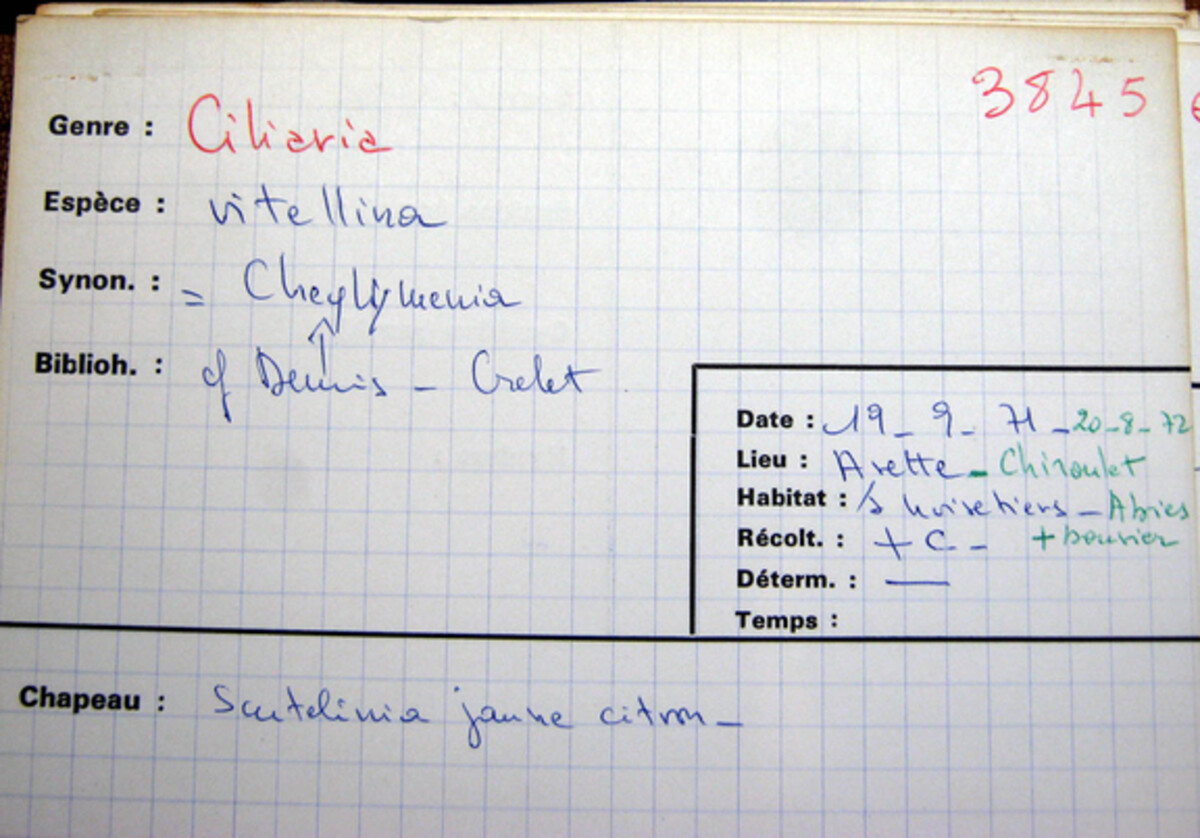 3845
Genre : Ciliaria
Espèce : vitellina
Synon. : = Cheylymenia
Biblioh. : cf Dennis - Grelet
Date : 19 - 9 - 71 - 20-8-72
Lieu : Arette - Chiroulet
Habitat : /s noisetiers - Abies
Récolt. : + C - + bouvier
Déterm. : —
Temps :
Chapeau : Scutelinia jaune citron -